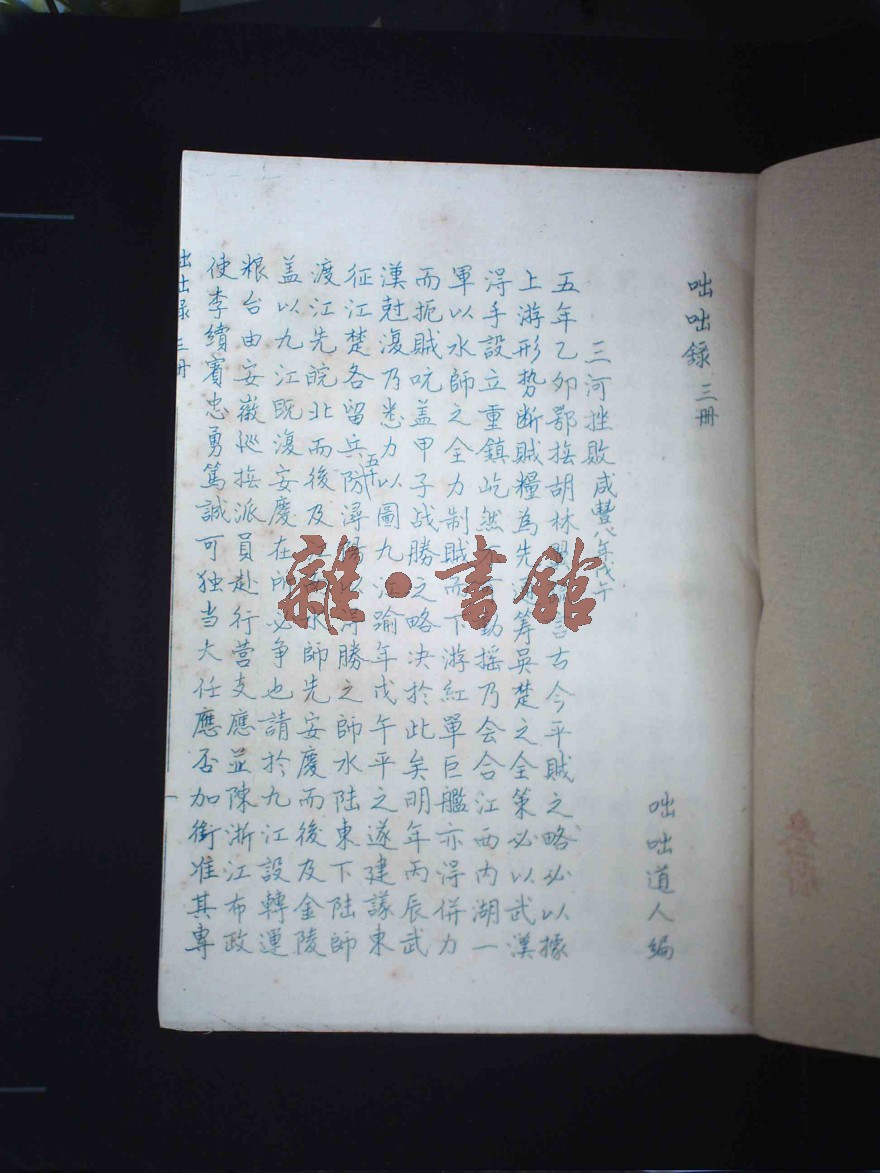 咄咄錄 三冊
咄咄道人編
三河挫敗 咸豐八年戊午
五年乙卯鄂撫胡林言古今平賊之略必以據
上游形势断賊糧為先籌吳楚之全策必以武漢
得手設立重鎮屹然動摇乃会合江西內湖一
軍以水師之全力制賊而下游紅單巨艦亦得併力
而扼賊吭盖甲子战勝之略决於此矣明年丙辰武
漢尅復乃悉力以圖九江踰年戊午平之遂建議東
征江楚各留兵五千防潯勝之師水陸東下陸師
渡江先皖北而後及水師先安慶而後及金陵
盖以九江既復安慶在所必争也請於九江設轉運
粮台由安徽巡撫派員赴行营支應並陳浙江布政
使李續賓忠勇篤誠可独当大任應否加銜准其專
咄咄录 三冊 一
雜·書館